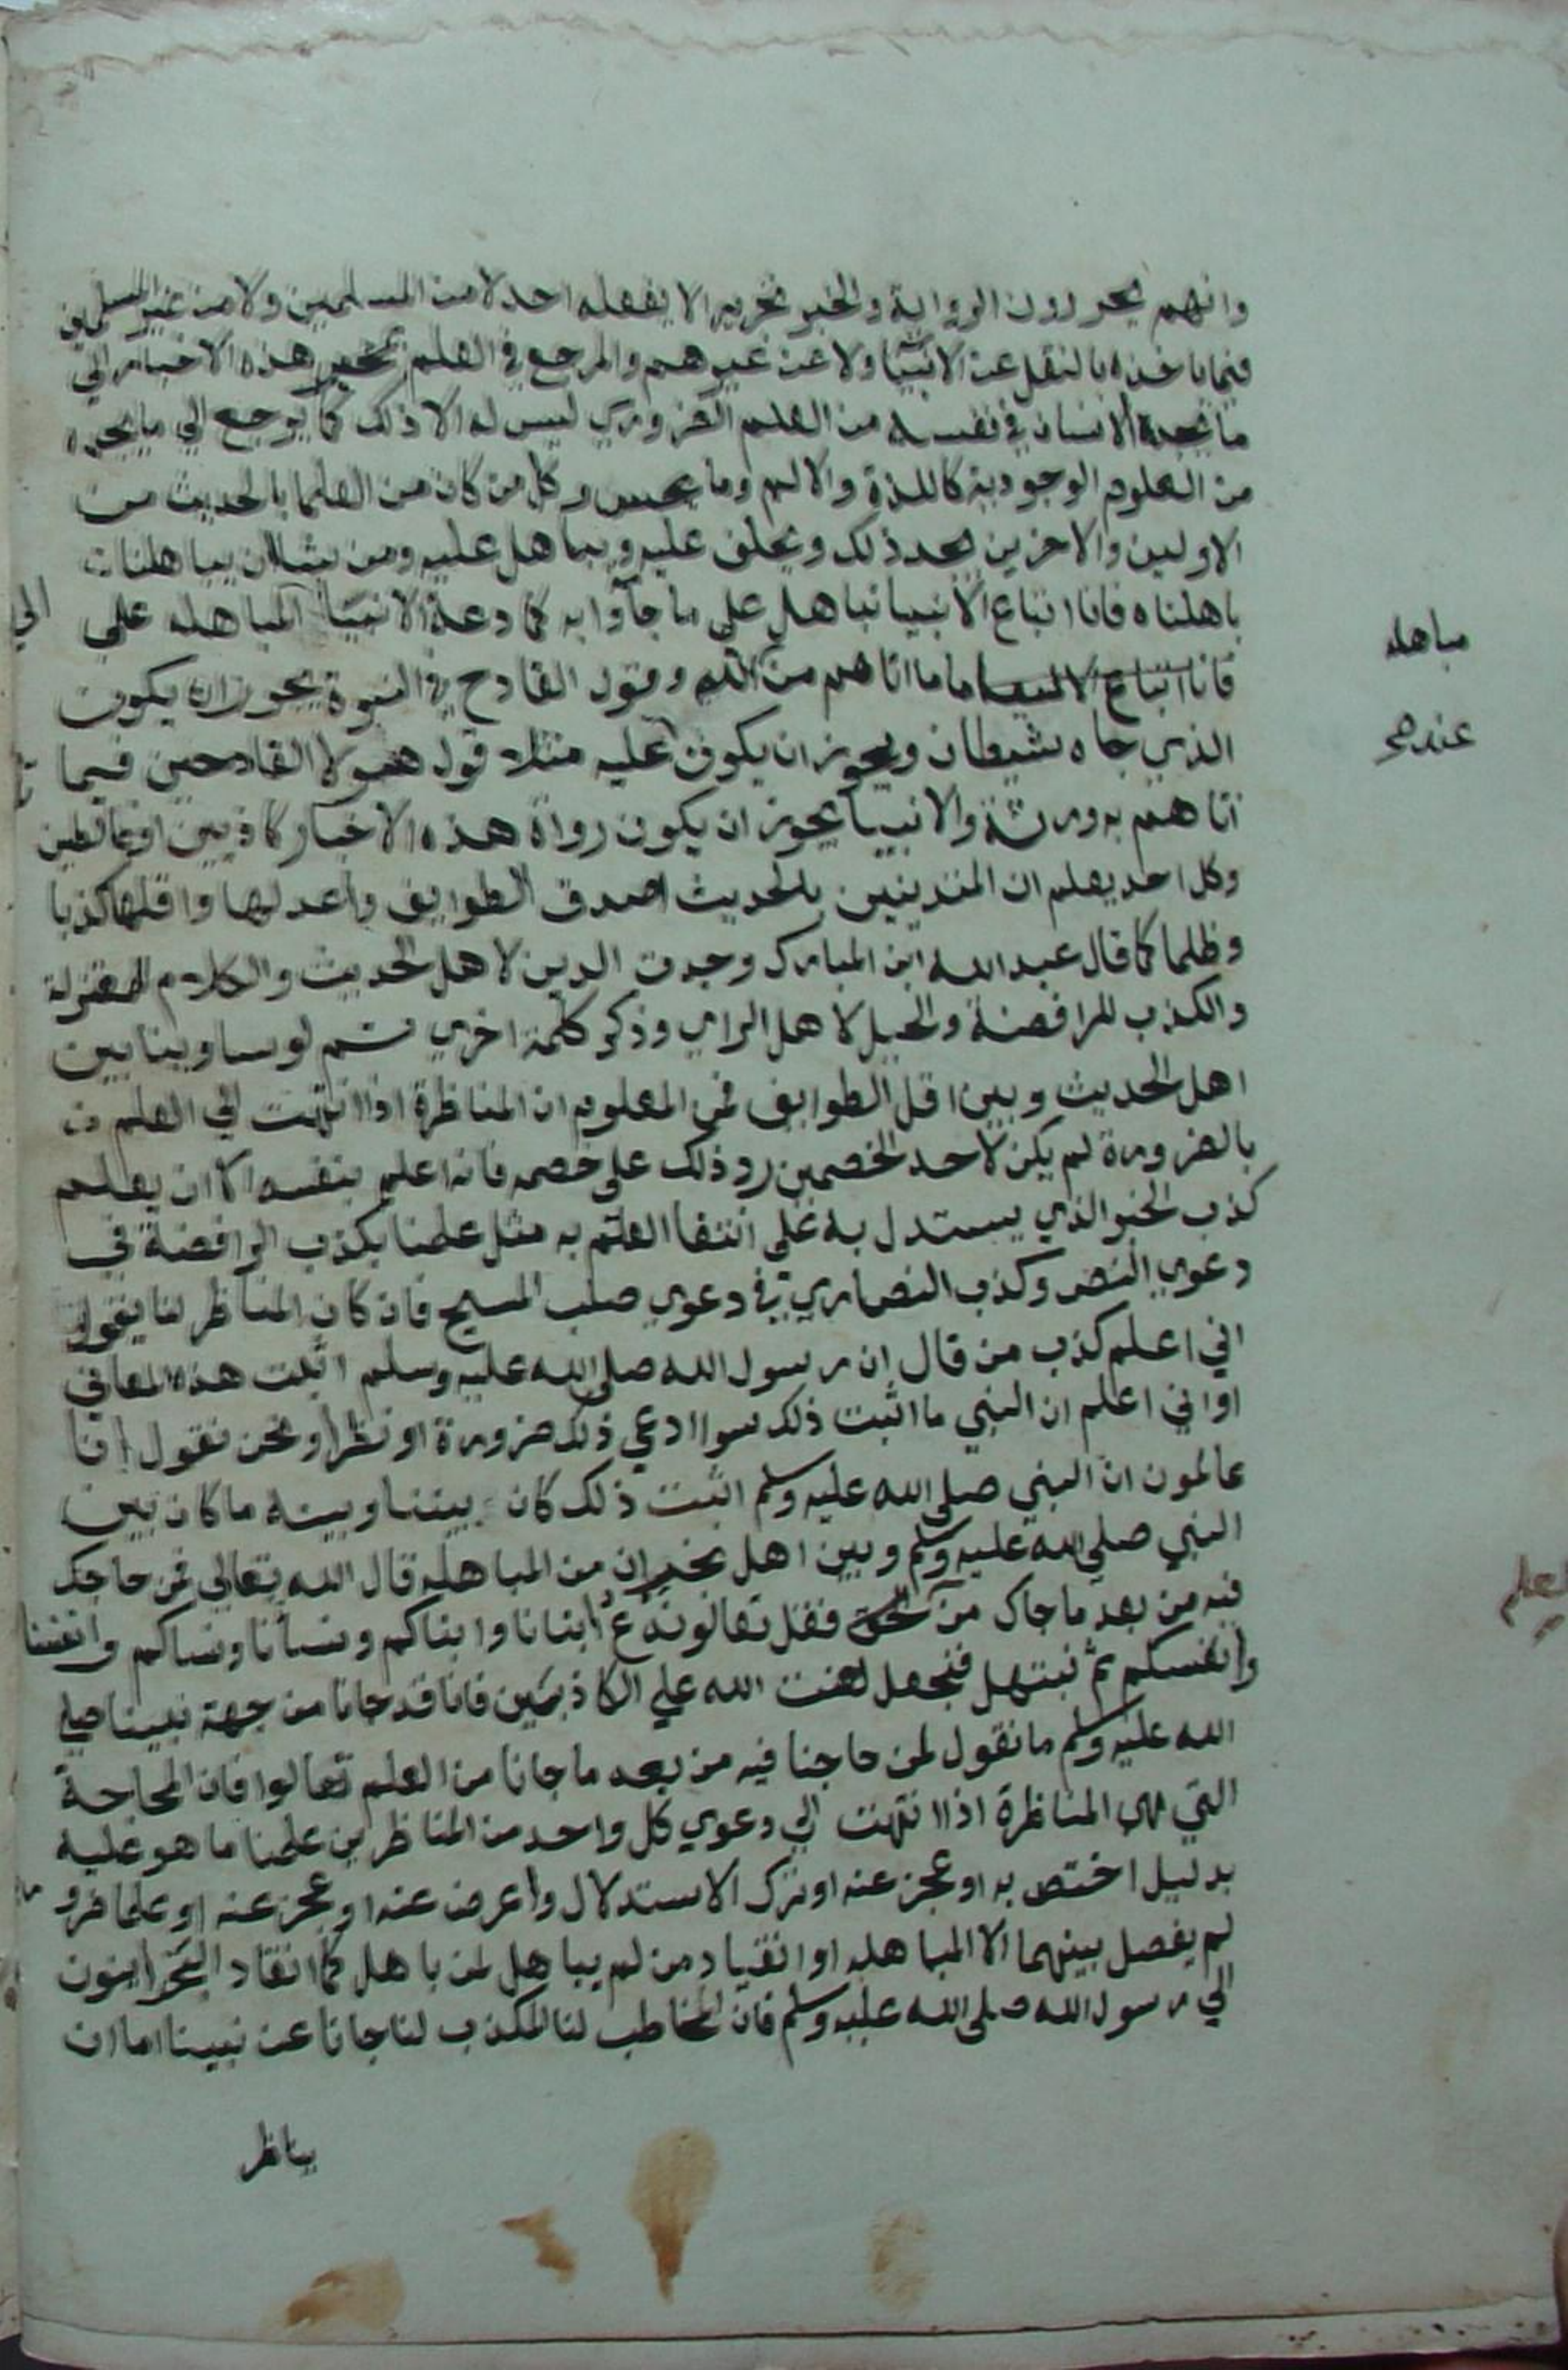 وانهم يحررون الرواية والخبر تحريرا لا يفعله احد لا من المسلمين ولا من غير المسلمين
فيما ياخذه بالنقل عن الانبيا ولا عن غيرهم والمرجع في العلم بمخبر هذه الاخبار الي
ما يجده الانسان في نفسه من العلم الضروري ليس له الا ذلك كما يرجع الي ما يجده
من العلوم الوجودية كاللذة والالم وما يحس وكل من كان من العلما بالحديث من
الاولين والاخرين يجد ذلك ويحلف عليه ويباهل عليه ومن شا ان يباهلنا
باهلناه فانا اتباع الانبيا نباهل علي ما جآوا به كما دعة الانبيا المباهله علي
فانا اتباع الانبيا ما اتاهم من الله وقول القادح في النبوة يجوز ان يكون
الذي جاه شيطان ويجوز ان يكون عليه مثلا قول هولا القادحين فيما
اتاهم به ورثة والانبيا يجوز ان يكون رواة هذه الاخبار كاذبين او غالطين
وكل احد يعلم ان المتدينين بالحديث اصدق الطوايف واعدلها واقلها كذبا
وظلما كما قال عبد الله ابن المبارك وجدت الدين لاهل الحديث والكلام للمعتزلة
والكذب للرافضة والحيل لاهل الراي وذكر كلمة اخري ثم لو ساوينا بين
اهل الحديث وبين اقل الطوايف فمن المعلوم ان المناظرة اذا انتهت الي العلم
بالضرورة لم يكن لاحد الخصمين رد ذلك علي خصمه فانه اعلم بنفسه الا ان يعلم
كذب الخبر الذي يستدل به علي انتفا العلم به مثل علمنا بكذب الرافضة في
دعوي النص وكذب النصاري في دعوي صلب المسيح فان كان المناظر لنا يقول
اني اعلم كذب من قال ان رسول الله صلي الله عليه وسلم اثبت هذه المعاني
او اني اعلم ان النبي ما اثبت ذلك سوا ادعي ذلك ضرورة او نظرا ونحن نقول انا
عالمون ان النبي صلي الله عليه وسلم اثبت ذلك كان بيننا وبينه ما كان بين
النبي صلي الله عليه وسلم وبين اهل نجران من المباهله قال الله تعالي فمن حاجك
فيه من بعد ما جاك من فقل تعالو ندع ابنانا وابناكم ونسآنا ونساكم وانفسنا
وانفسكم ثم نبتهل فنجعل لعنت الله علي الكاذبين فانا قد جانا من جهة نبينا صلي
الله عليه وسلم ما نقول لمن حاجنا فيه من بعد ما جانا من العلم تعالوا فان المحاجة
التي هي المناظرة اذا انتهت الي دعوي كل واحد من المناظرين علمنا ما هو عليه
بدليل اختص به او عجز عنه او ترك الاستدلال واعرض عنه او عجز عنه او علما ضرو
لم يفصل بينهما الا المباهله او انقياد من لم يباهل لمن باهل كما انقاد النجرانيون
الي رسول الله صلي الله عليه وسلم فان المخاطب لنا المكذب لنا جانا عن نبينا اما ان
يناظر
مباهله
عندهم